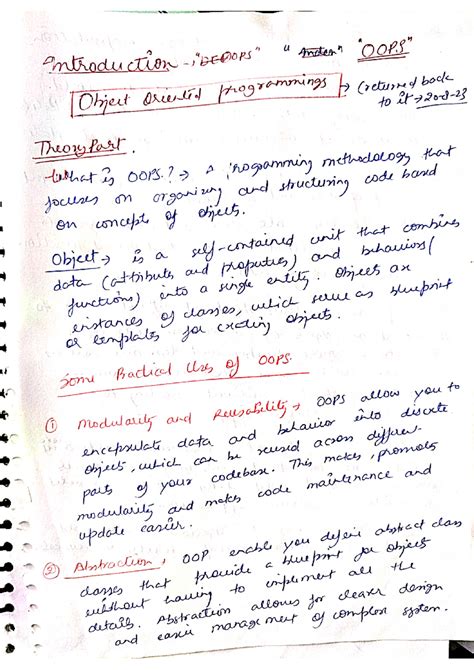 Introduction - "OOPS" "OOPS"
Object Oriented programmings → (returned back
to it → 20-8-23
Theory Part.
What is OOPS? → A programming methodology that
focuses on organizing and structuring code based
on concepts of objects.
Object → is a self-contained unit that combines
data (attributes and properties) and behaviors (
functions) into a single entity. Objects are
instances of classes, which serve as blueprint
or templates for creating objects.
Some Practical Uses of OOPS.
① Modularity and Reusability → OOPS allow you to
encapsulate data and behavior into discrete
objects, which can be reused across different
parts of your codebase. This makes, promotes
modularity and makes code maintenance and
update easier.
② Abstraction, OOP enable you define abstract class
classes that provide a blueprint for objects
without having to implement all the
details. Abstraction allows for clearer design
and easier management of complex system.